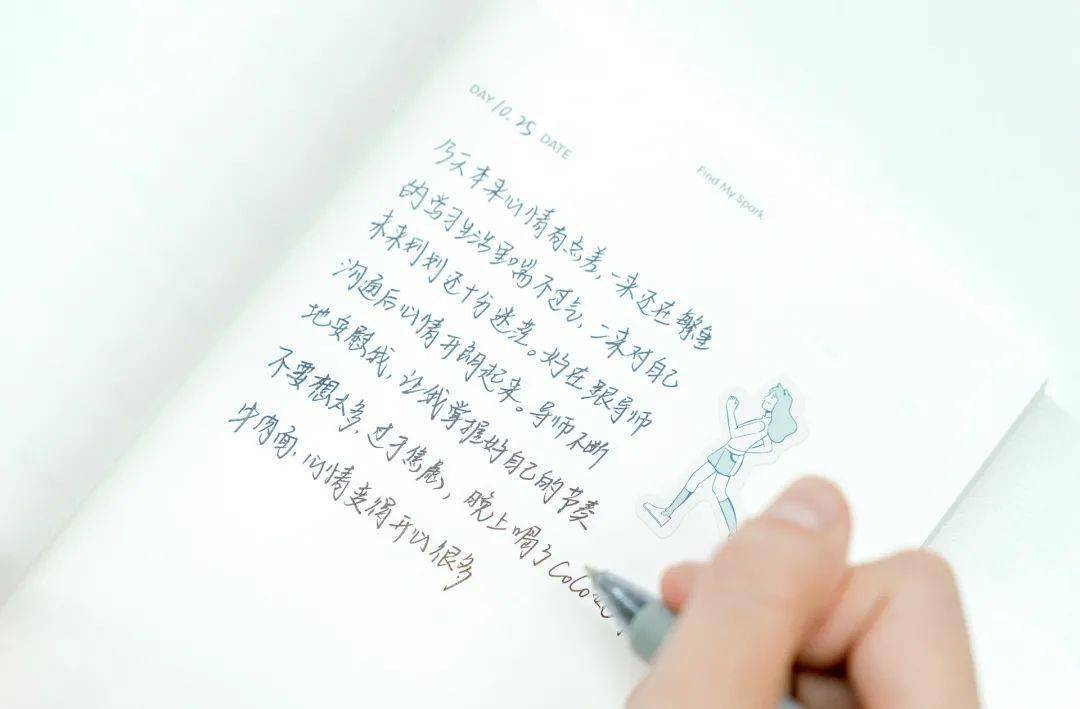 DAY 10.25 DATE
Find My Spark
今天本来心情有点差,一来还在繁重
的学习生活里喘不过气,二来对自己
未来规划还十分迷茫。好在跟导师
沟通后心情开朗起来。导师不断
地安慰我,让我掌握好自己的节奏
不要想太多,过于焦虑,晚上喝了CoCo
牛肉面,心情变得开心很多